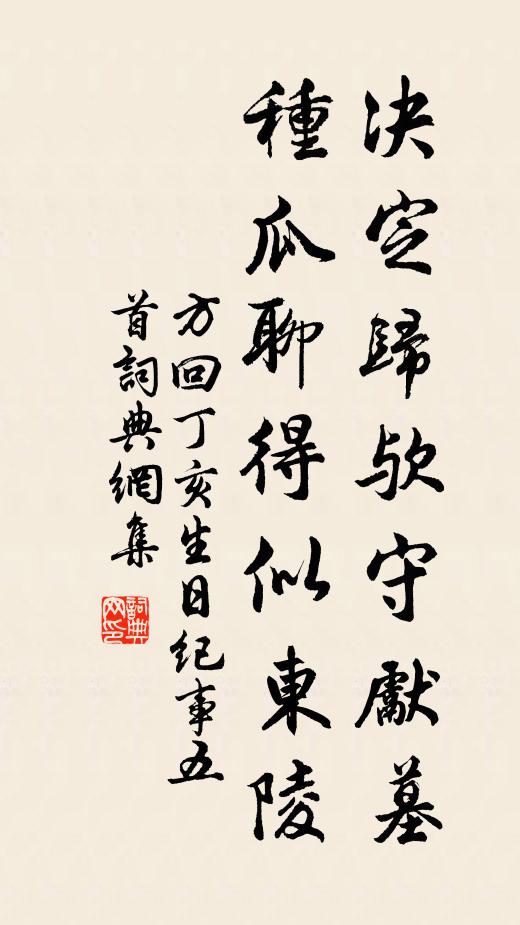 决定歸欤守獻墓
種瓜聊得似東陵
方回丁亥生日纪事五
首詞典網集
詞典
网印